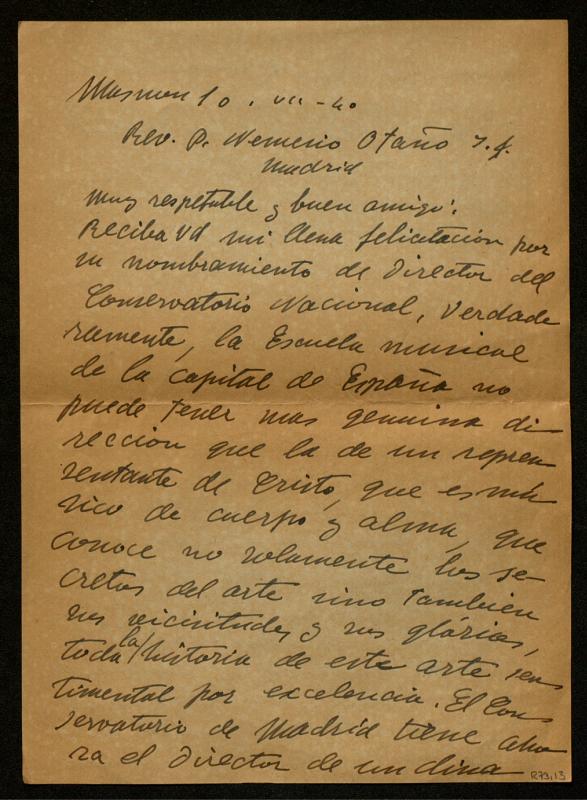 Masnou 10. VII-40
Rev. P. Nemesio Otaño S. J.
Madrid
Muy respetable y buen amigo:
Reciba Vd mi llena felicitación por
su nombramiento de Director del
Conservatorio Nacional, Verdade
ramente, la Escuela musical
de la capital de España no
puede tener mas genuina di-
rección que la de un repren-
sentante de Cristo, que es mú-
sico de cuerpo y alma, que
conoce no solamente los se-
cretos del arte sino tambien
sus vicisitudes y sus glórias,
toda la historia de este arte sen-
timental por excelencia. El Con-
servatorio de Madrid tiene aho
ra el Director de un dina
R73,13